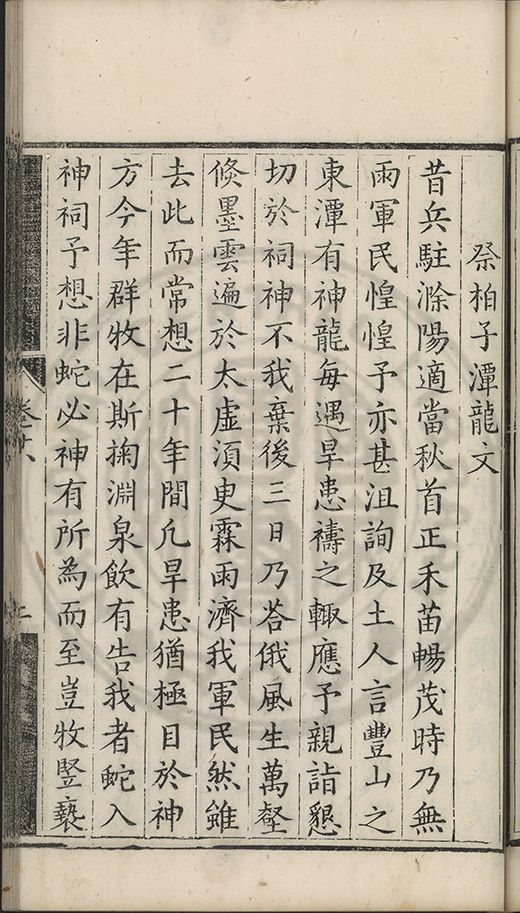 祭柏子潭龍文
昔兵駐滁陽適當秋首正禾苗暢茂時乃無
雨軍民惶惶予亦甚沮詢及土人言豐山之
東潭有神龍每遇旱患禱之輙應予親詣懇
切於祠神不我棄後三日乃荅俄風生萬壑
倐墨雲遍於太虛須臾霖雨濟我軍民然雖
去此而常想二十年間凢旱患猶極目於神
方今年群牧在斯掬淵泉飲有告我者蛇入
神祠予想非蛇必神有所為而至豈牧豎褻